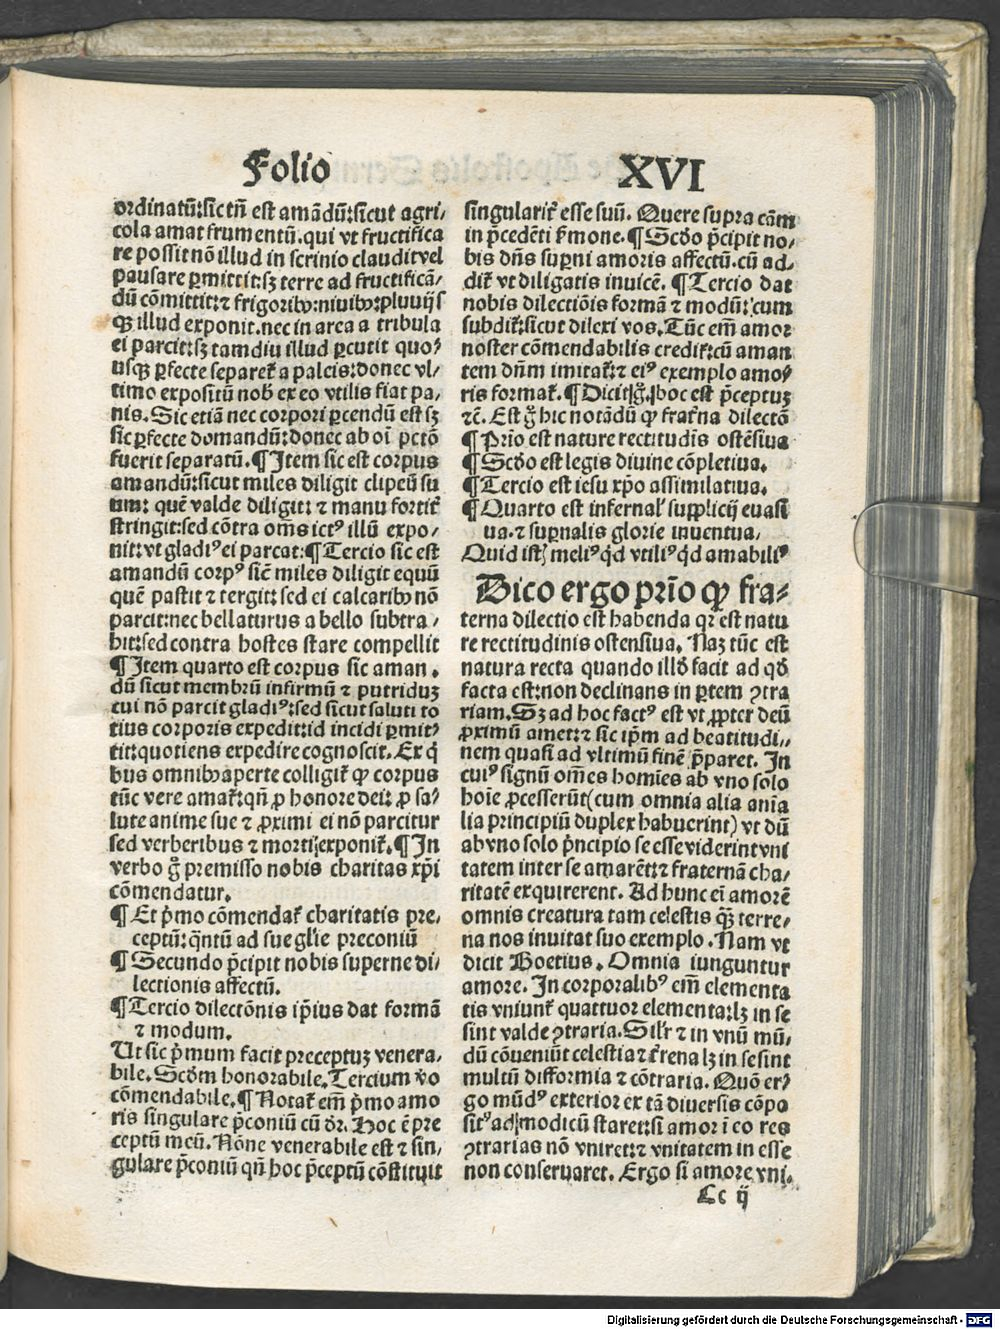 Folio XVI
ordinatũ:sic tñ est amãdũ:sicut agri/
cola amat frumentũ.qui vt fructifica
re possit nõ illud in scrinio claudit vel
pausare ꝑmittit:sꝫ terre ad fructificã/
dũ cõmittit:⁊ frigoribꝰ:niuibꝰ:pluuijs
qꝫ illud exponit.nec in area a tribula
ei parcit:sꝫ tam diu illud ꝑcutit quo/
usqꝫ ꝑfecte separet̃ a paleis:donec vl/
timo expositũ nob̃ ex eo vtilis fiat pa/
nis. Sic etiã nec corpori ꝑcendũ est sꝫ
sic ꝑfecte domandũ:donec ab oĩ pctõ
fuerit separatũ. ¶ Item sic est corpus
amandũ:sicut miles diligit clipeũ su
um: quẽ valde diligit: ⁊ manu fortit̃
stringit:sed cõtra oẽs ictꝰ illũ expo/
nit:vt gladiꝰ ei parcat: ¶ Tercio sic est
amandũ corpꝰ sic̃ miles diligit equũ
quẽ pascit ⁊ tergit: sed ei calcaribꝰ nõ
parcit:nec bellaturus a bello subtra/
hit:sed contra hostes stare compellit
¶ Item quarto est corpus sic aman.
dũ sicut membrũ infirmũ ⁊ putriduꝫ
cui nõ parcit gladiꝰ:sed sicut saluti to
tius corporis expedit:id incidi ꝑmit/
tit:quotiens expedire cognoscit. Ex q̃
bus omnibꝰ aperte colligit̃ ꝙ corpus
tũc vere amat̃:qñ ꝓ honore dei: ꝓ sa/
lute anime sue ⁊ ꝓximi ei nõ parcitur
sed verberibus ⁊ morti exponit̃. ¶ In
verbo g̃ premisso nobis charitas xp̃i
cõmendatur.
¶ Et p̃mo cõmendat̃ charitatis pre/
ceptũ:q̃ntũ ad sue gl̃ie preconiũ
¶ Secundo p̃cipit nobis superne di/
lectionis affectũ.
¶ Tercio dilectõnis ip̃ius dat formã
⁊ modum.
Ut sic p̃mum facit preceptuꝫ venera/
bile. Scd̃m honorabile. Tercium ṽo
cõmendabile. ¶ Notat̃ em̃ p̃mo amo
ris singulare p̃coniũ cũ dr̃. Hoc ẽ pre
ceptũ meũ. Nõne venerabile est ⁊ sin/
gulare p̃coniũ qñ hoc p̃ceptũ cõstituit
singularit̃ esse suũ. Quere supra eãm
in p̃cedẽti s̃mone. ¶ Scd̃o p̃cipit no/
bis dñs suꝑni amoris affectũ.cũ ad/
dit̃ vt diligatis inuicẽ. ¶ Tercio dat
nobis dilectiõis formã ⁊ modũ: cum
subdit̃:sicut dilexi vos. Tũc em̃ amor
noster cõmendabilis credit̃:cũ aman
tem dñm imitat̃:⁊ eiꝰ exemplo amo/
ris format̃. ¶ Dicit g̃. hoc est p̃ceptuꝫ
⁊c̃. Est g̃ hic notãdũ ꝙ frat̃na dilectõ
¶ Prĩo est nature rectitudĩs ostẽsiua
¶ Scd̃o est legis diuine cõpletiua.
¶ Tercio est iesu xp̃o assimilatiua.
¶ Quarto est infernal' supplicij euasi
ua.⁊ suꝑnalis glorie inuentua.
Quid istꝫ meliꝰ qd̃ vtiliꝰ qd̃ amabiliꝰ
Dico ergo prĩo ꝙ fra-
terna dilectio est habenda qꝛ est natu
re rectitudinis ostensiua. Naꝫ tũc est
natura recta quando illd̃ facit ad qd̃
facta est:non declinans in ꝑtem ꝯtra
riam. Sꝫ ad hoc factꝰ est vt ꝓpter deũ
ꝓximũ amet:⁊ sic ip̃m ad beatitudi/
nem quasi ad vltimũ finẽ p̃paret. In
cuiꝰ signũ om̃es homĩes ab vno solo
hoĩe ꝓcesserũt(cum omnia alia anĩa
lia principiũ duplex habuerint) vt dũ
ab vno solo p̃ncipio se esse viderint vni
tatem inter se amarẽt:⁊ fraternã cha/
ritatẽ exquirerent. Ad hunc eĩ amorẽ
omnis creatura tam celestis q̃ꝫ terre/
na nos inuitat suo exemplo. Nam vt
dicit Boetius. Omnia iunguntur
amore. In corporalibꝰ em̃ elementa
tis vniunt̃ quattuor elementa:lꝫ in se
sint valde ꝯtraria. Sil'r ⁊ in vnũ mũ/
dũ cõueniũt celestia ⁊ t̃rena lꝫ in se sint
multũ difformia ⁊ cõtraria. Quõ er/
go mũdꝰ exterior ex tã diuersis cõpo
sitꝰ ad modicũ staret:si amor i eo res
ꝯtrarias nõ vniret:⁊ vnitatem in esse
non conseruaret. Ergo si amore vni.
Cc ij
Digitalisierung gefördert durch die Deutsche Forschungsgemeinschaft - DFG